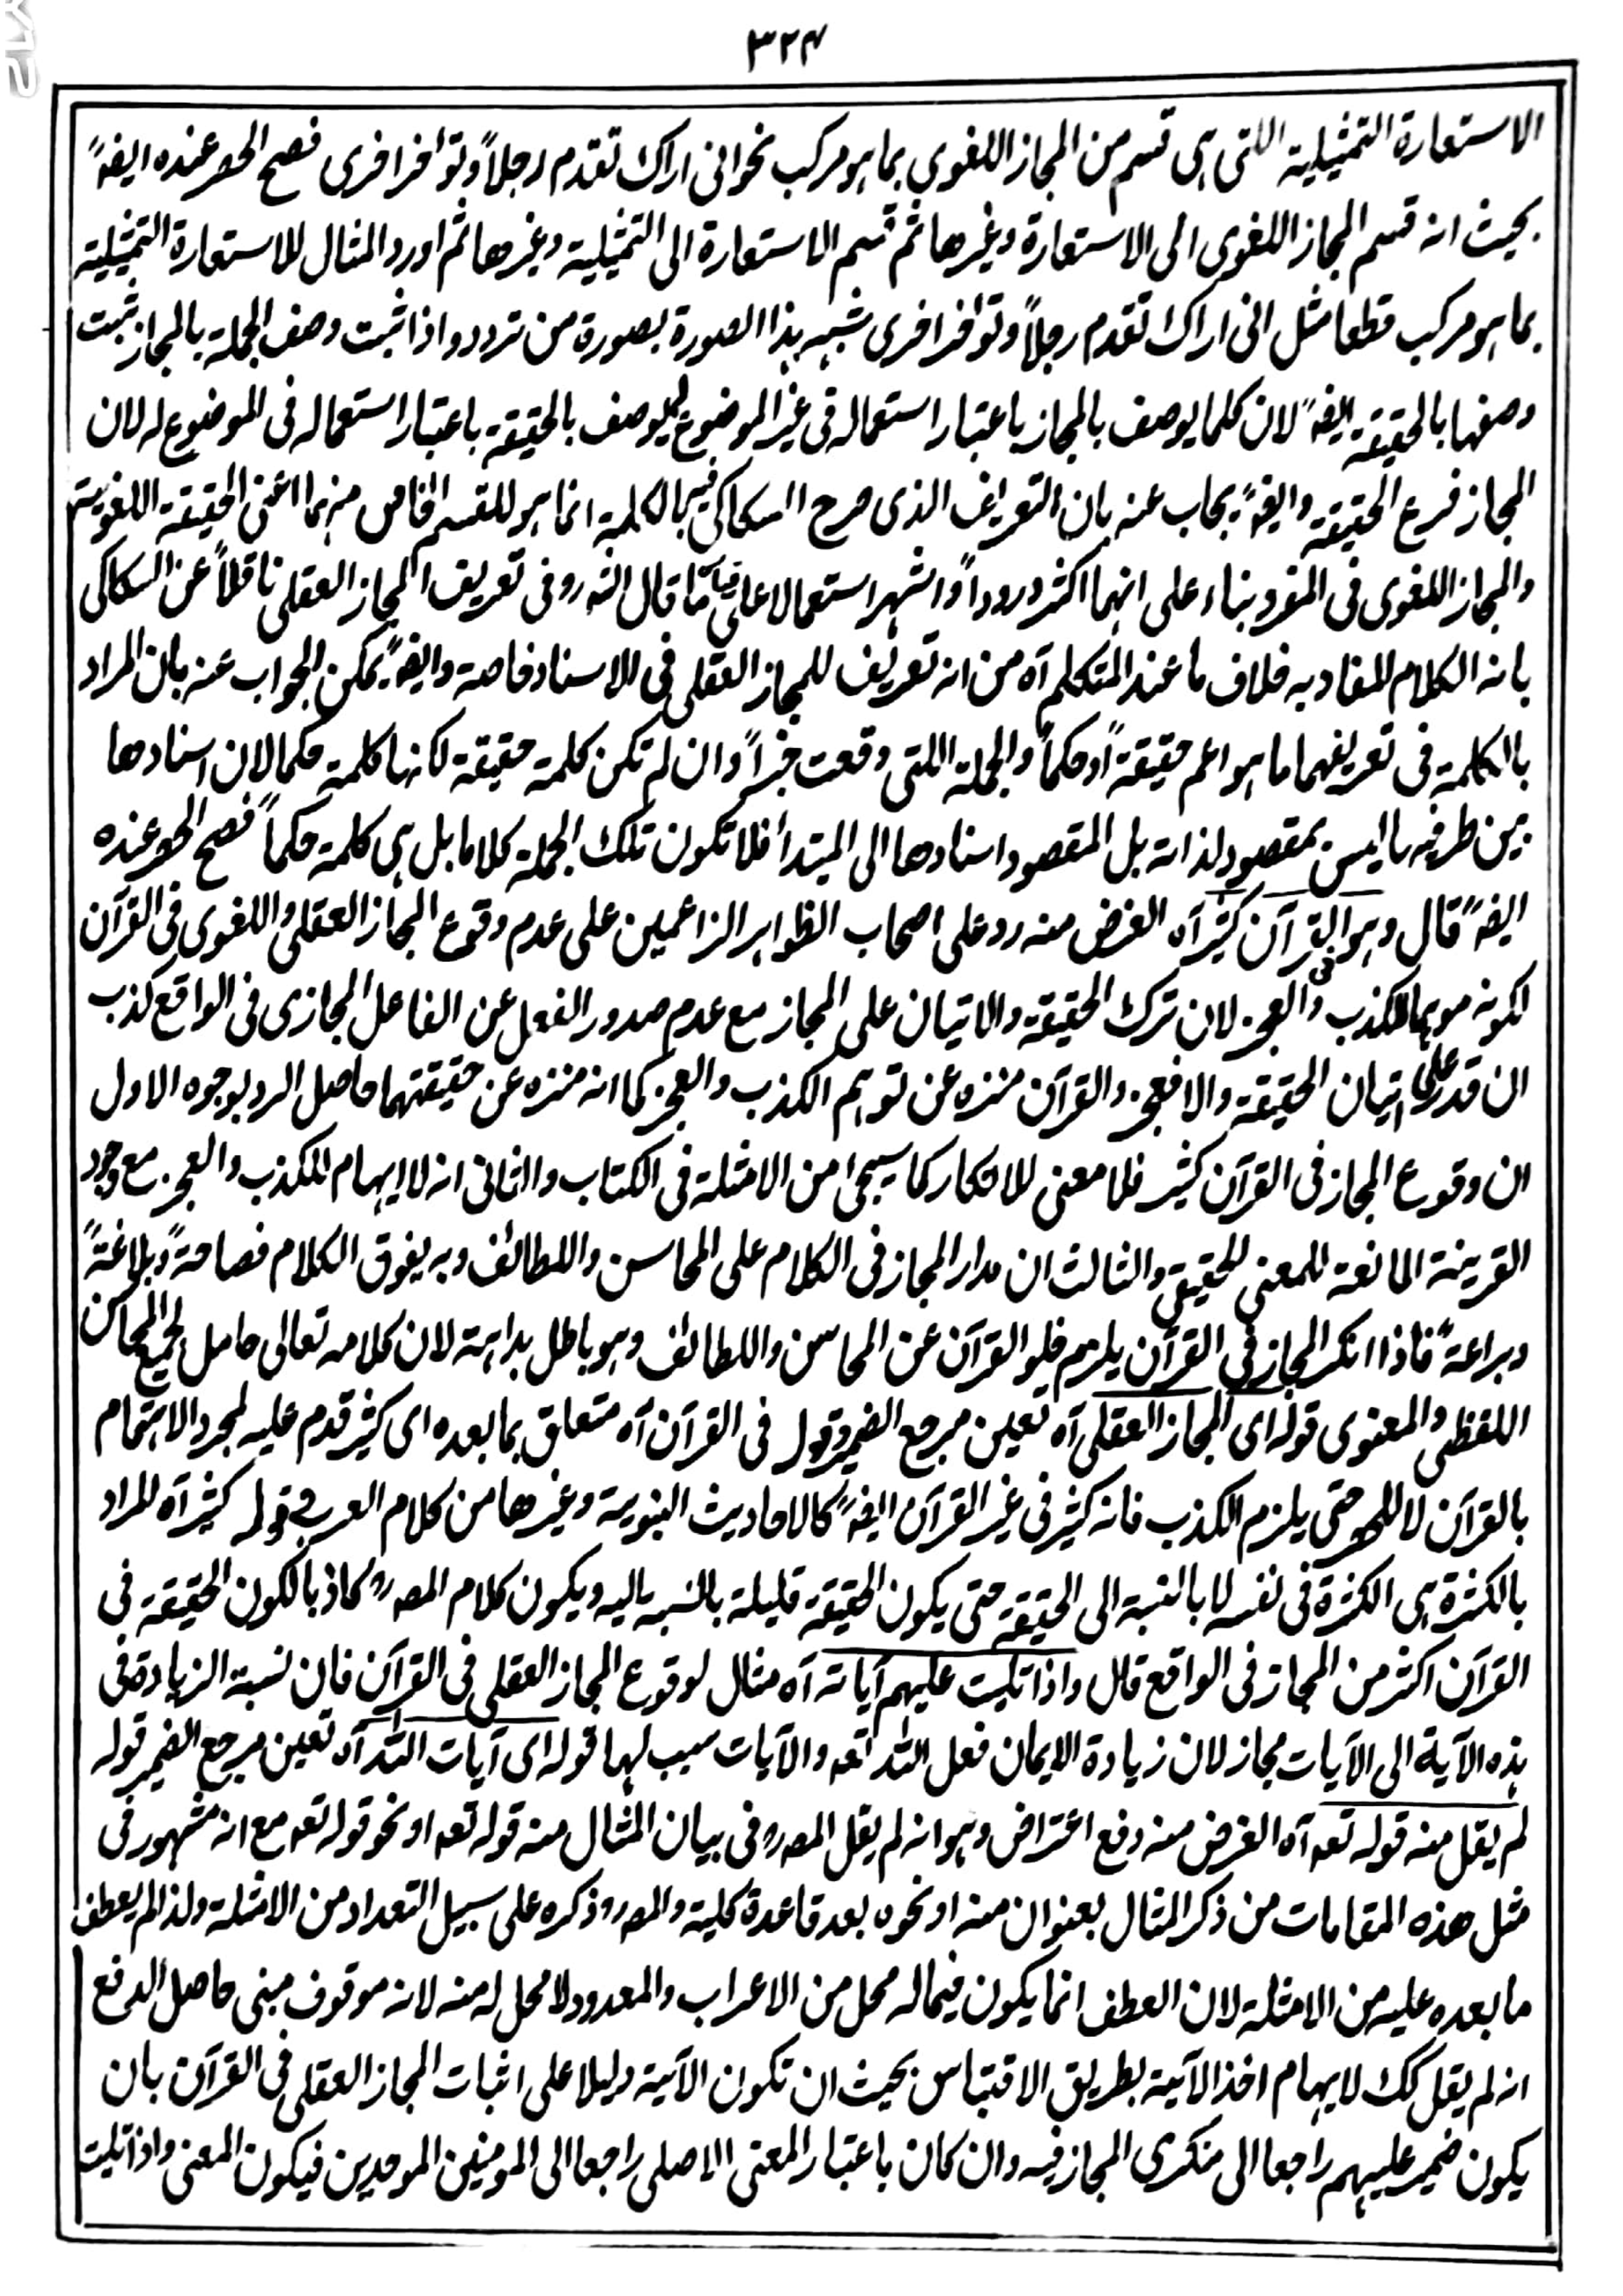 ٣٢٤
الاستعارة التمثيلية اللتى هى قسم من المجاز اللغوى بما هو مركب نحو انى اراك تقدم رجلاً وتؤاخر اخرى فصح الحصر عنده ايضاً
بحيث انه قسم المجاز اللغوى الى الاستعارة وغيرها ثم قسم الاستعارة الى التمثيلية وغيرها ثم اورد المثال للاستعارة التمثيلية
بما هو مركب قطعا مثل انى اراك تقدم رجلاً وتؤاخر اخرى شبه هذا الصورة بصورة من تردد واذا ثبت وصف الجملة بالمجاز ثبت
وصفها بالحقيقة ايضاً لان كلما يوصف بالمجاز باعتبار استعماله فى غير الموضوع له يوصف بالحقيقة باعتبار استعماله فى الموضوع له لان
المجاز فرع الحقيقة وايضاً يجاب عنه بان التعريف الذى صرح السكاكى فيه بالكلمة انما هو للقسم الخاص منهما اعنى الحقيقة اللغوية
والمجاز اللغوى فى المفرد بناء على انهما اكثر وروداً واشهر استعمالا على قياس ما قال الشه رو فى تعريف المجاز العقلى ناقلاً عن السكاكى
بانه الكلام المفاد به خلاف ما عند المتكلم آه من انه تعريف للمجاز العقلى فى الاسناد خاصة وايضاً يمكن الجواب عنه بان المراد
بالكلمة فى تعريفهما ما هو اعم حقيقة او حكماً والجملة اللتى وقعت خبراً وان لم تكن كلمة حقيقة لكنها كلمة حكما لان اسنادها
بين طرفيها ليس بمقصود لذاته بل المقصود اسنادها الى المبتدأ فلا تكون تلك الجملة كلاما بل هى كلمة حكماً فصح الحصر عنده
ايضاً قال وهو فى القرآن كثير آه الغرض منه رد على اصحاب الظواهر الزاعمين على عدم وقوع المجاز العقلى واللغوى فى القرآن
لكونه موهما للكذب والعجز لان ترك الحقيقة والاتيان على المجاز مع عدم صدور الفعل عن الفاعل المجازى فى الواقع كذب
ان قدر على اتيان الحقيقة والا فعجز والقرآن منزه عن توهم الكذب والعجز كما انه منزه عن حقيقتهما حاصل الرد بوجوه الاول
ان وقوع المجاز فى القرآن كثير فلا معنى للانكار كما سيجئ من الامثلة فى الكتاب والثانى انه لا ايهام للكذب والعجز مع وجود
القرينة المانعة للمعنى الحقيقى والثالث ان مدار المجاز فى الكلام على المحاسن واللطائف وبه يفوق الكلام فصاحةً وبلاغةً
وبراعةً فاذا انكر المجاز فى القرآن يلزم خلو القرآن عن المحاسن واللطائف وهو باطل بداهة لان كلامه تعالى حامل لجميع المحاسن
اللفظى والمعنوى قوله اى المجاز العقلى آه تعيين مرجع الضمير وقوله فى القرآن آه متعلق بما بعده اى كثير قدم عليه لمجرد الاهتمام
بالقرآن لا للحصر حتى يلزم الكذب فانه كثير فى غير القرآن ايضاً كالاحاديث النبوية وغيرها من كلام العرب وقوله كثير آه المراد
بالكثرة هى الكثرة فى نفسه لا بالنسبة الى الحقيقة حتى يكون الحقيقة قليلة بالنسبة اليه ويكون كلام المصه رو كاذبا لكون الحقيقة فى
القرآن اكثر من المجاز فى الواقع قال واذا تليت عليهم آياته آه مثال لوقوع المجاز العقلى فى القرآن فان نسبة الزيادة فى
هذه الآية الى الآيات مجاز لان زيادة الايمان فعل الله تعه والآيات سبب لها قوله اى آيات الله آه تعيين مرجع الضمير قوله
لم يقل منه قوله تعه آه الغرض منه دفع اعتراض وهو انه لم يقل المصه رو فى بيان المثال منه قوله تعه او نحو قوله تعه مع انه مشهور فى
مثل هذه المقامات من ذكر المثال بعنوان منه او نحوه بعد قاعدة كلية والمصه رو ذكره على سبيل التعداد من الامثلة ولذا لم يعطف
ما بعده عليه من الامثلة لان العطف انما يكون فيما له محل من الاعراب والمعدود لا محل له منه لانه موقوف مبنى حاصل الدفع
انه لم يقل كك لايهام اخذ الآية بطريق الاقتباس بحيث ان تكون الآية دليلا على اثبات المجاز العقلى فى القرآن بان
يكون ضمير عليهم راجعا الى منكرى المجاز فيه وان كان باعتبار المعنى الاصلى راجعا الى المومنين الموحدين فيكون المعنى واذا تليت